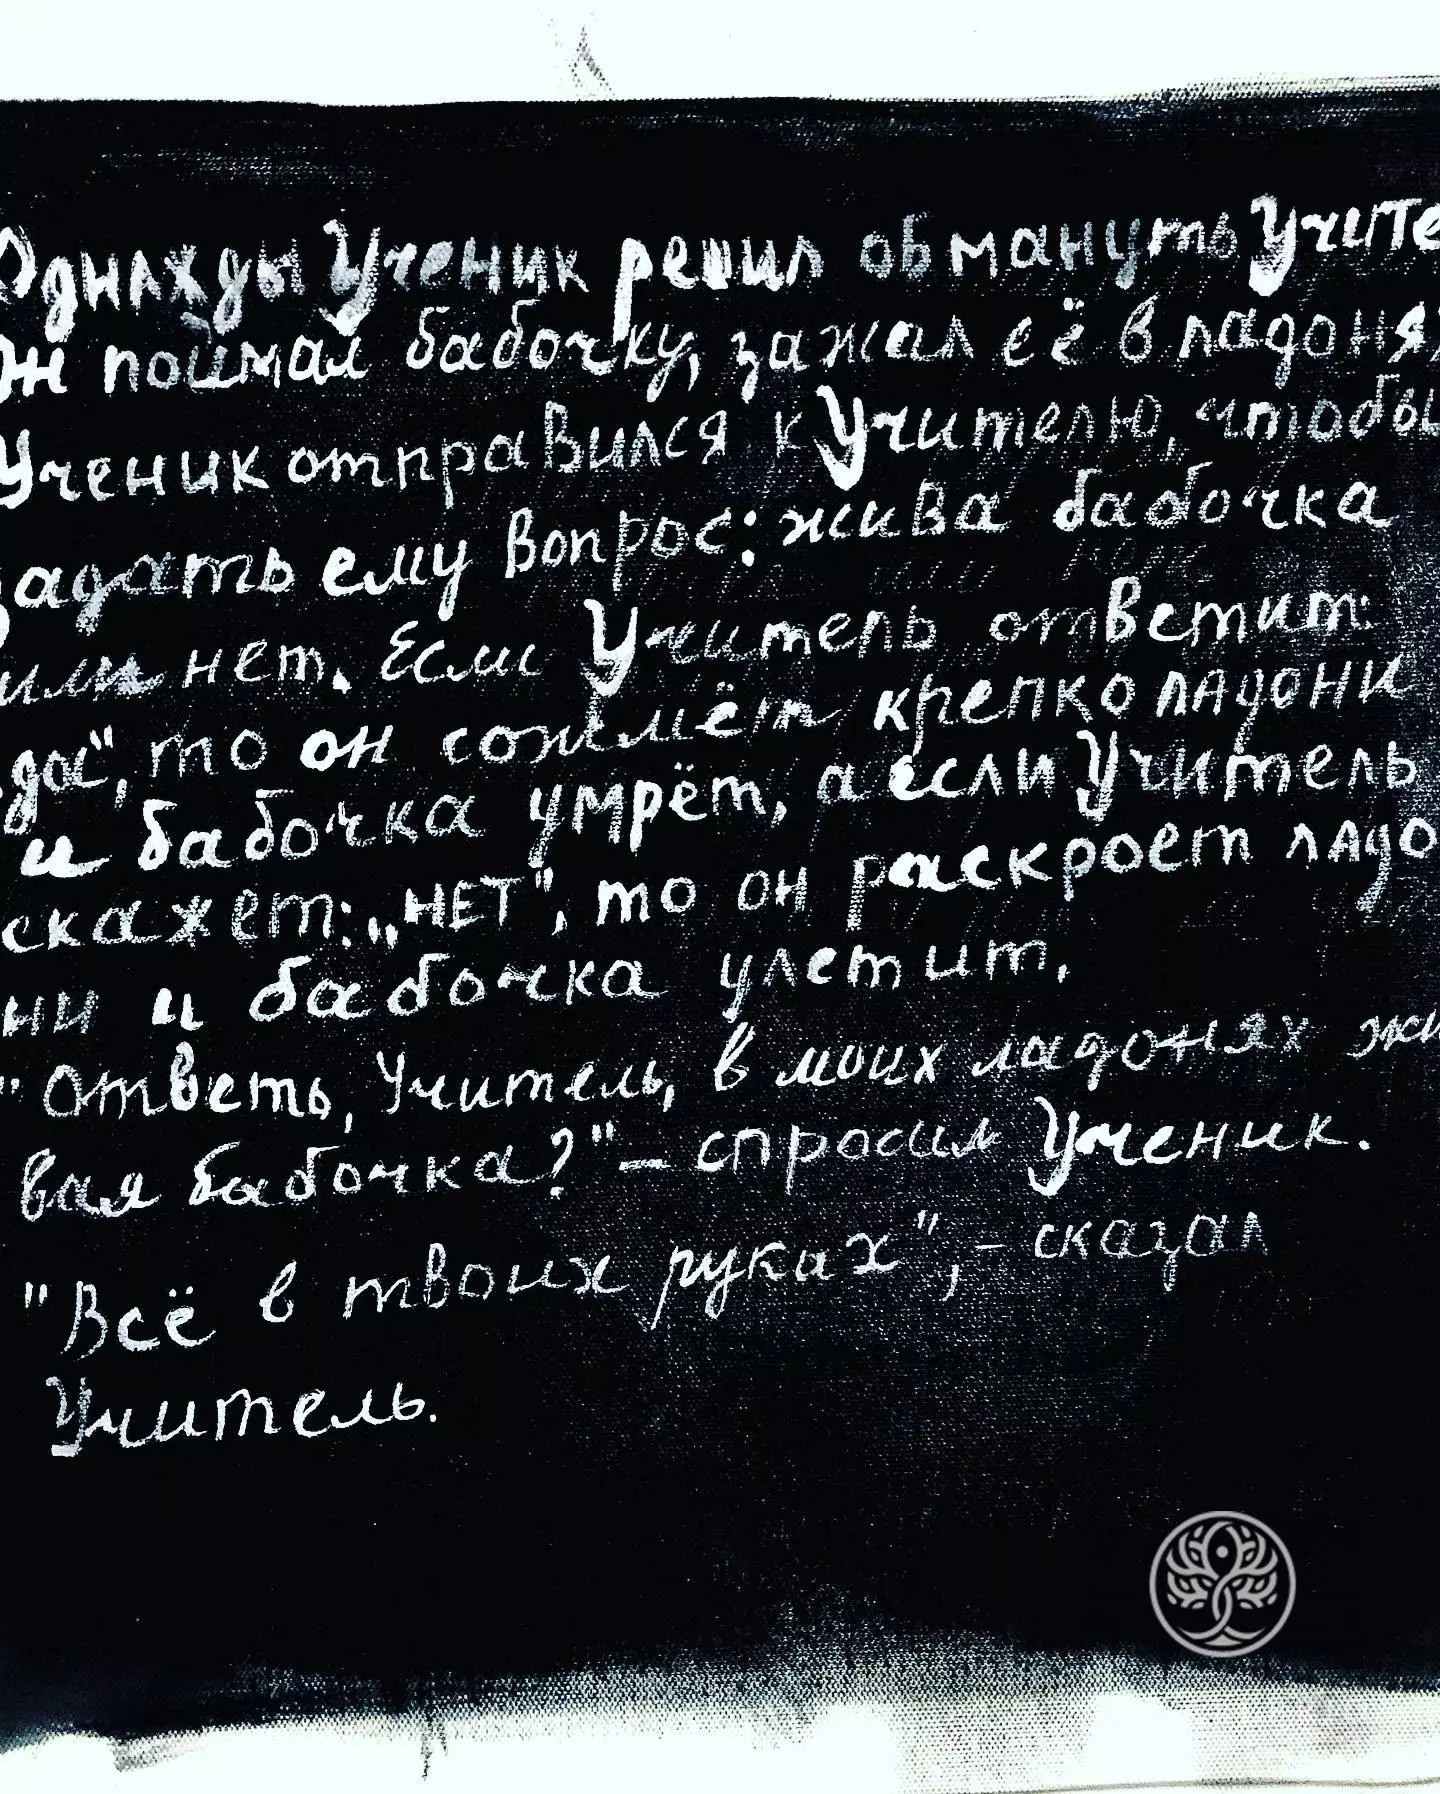 Однажды Ученик решил обмануть Учите
Он поймал бабочку, зажал её в ладонях
Ученик отправился к Учителю, чтобы
задать ему вопрос: жива бабочка
или нет. Если Учитель ответит:
„да", то он сожмёт крепко ладони
и бабочка умрёт, а если Учитель
скажет: „НЕТ", то он раскроет ладо
ни и бабочка улетит.
"Ответь, Учитель, в моих ладонях жи
вая бабочка?" – спросил Ученик.
"Всё в твоих руках", – сказал
Учитель.